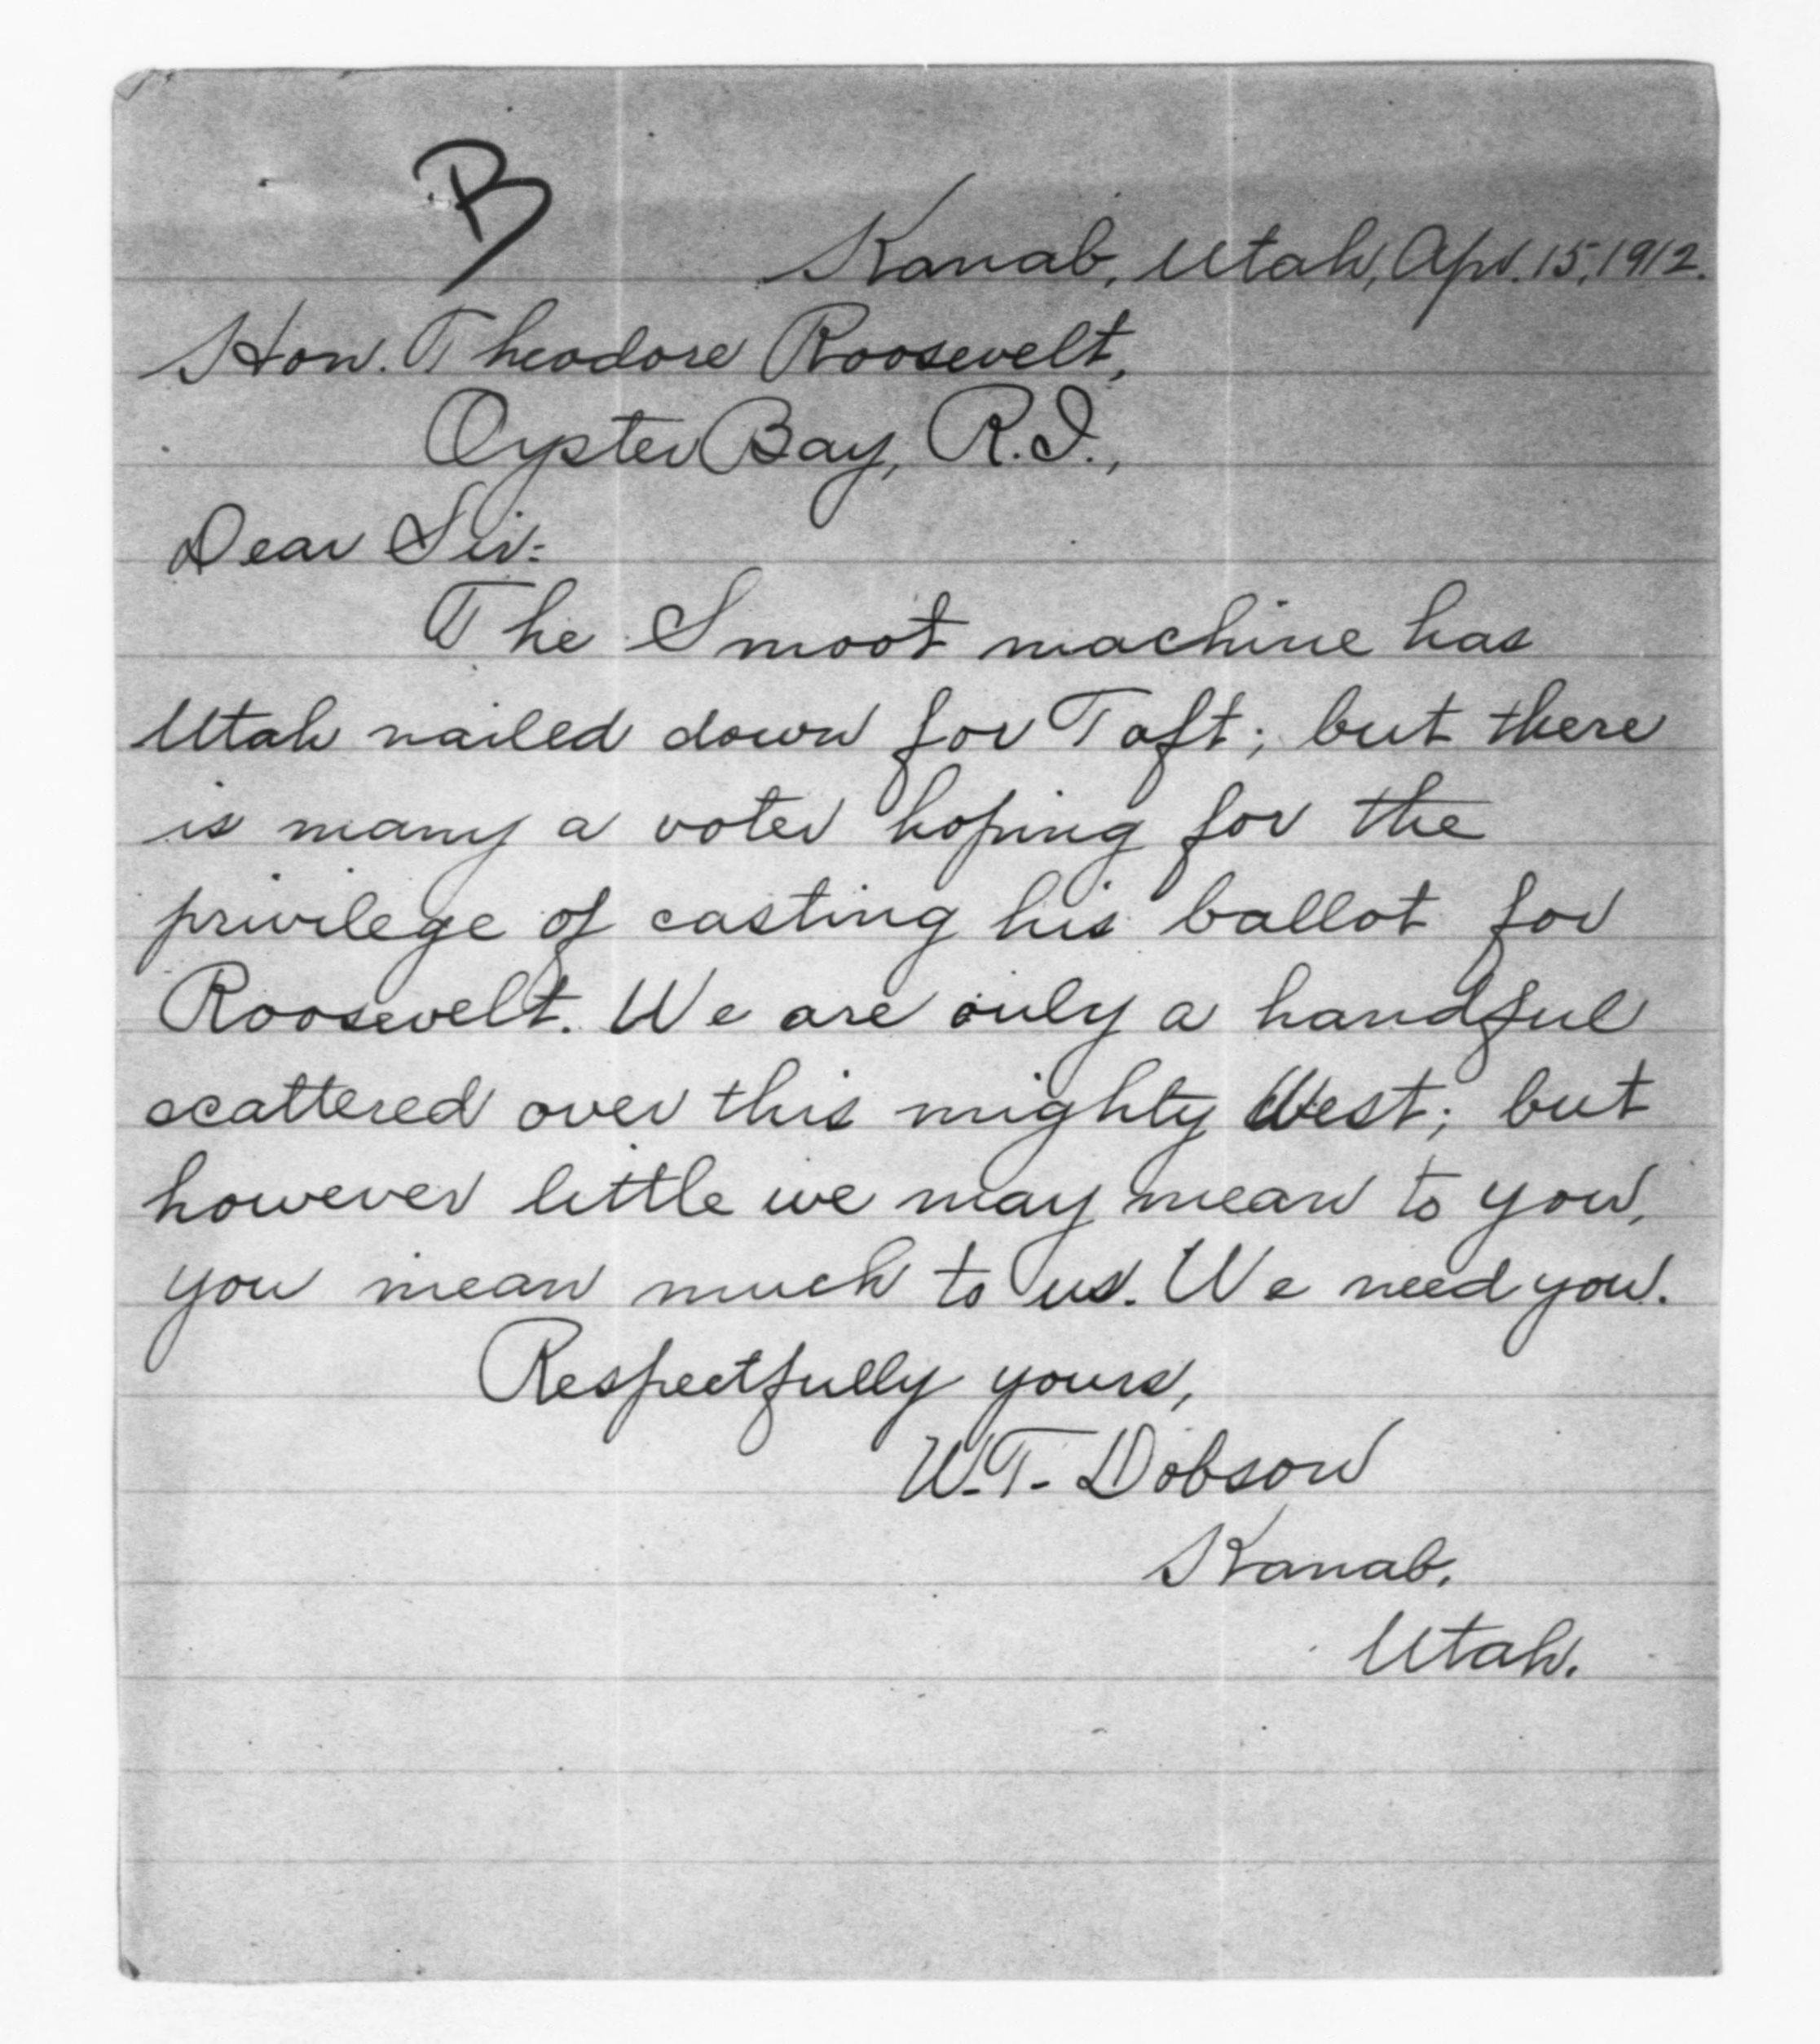 B
Kanab, Utah, Apr. 15, 1912.
Hon. Theodore Roosevelt,
Oyster Bay, R.I.,
Dear Sir:
The Smoot machine has
Utah nailed down for Taft; but there
is many a voter hoping for the
privilege of casting his ballot for
Roosevelt. We are only a handful
scattered over this mighty West; but
however little we may mean to you,
you mean much to us. We need you.
Respectfully yours,
W.T. Dobson
Kanab,
Utah.